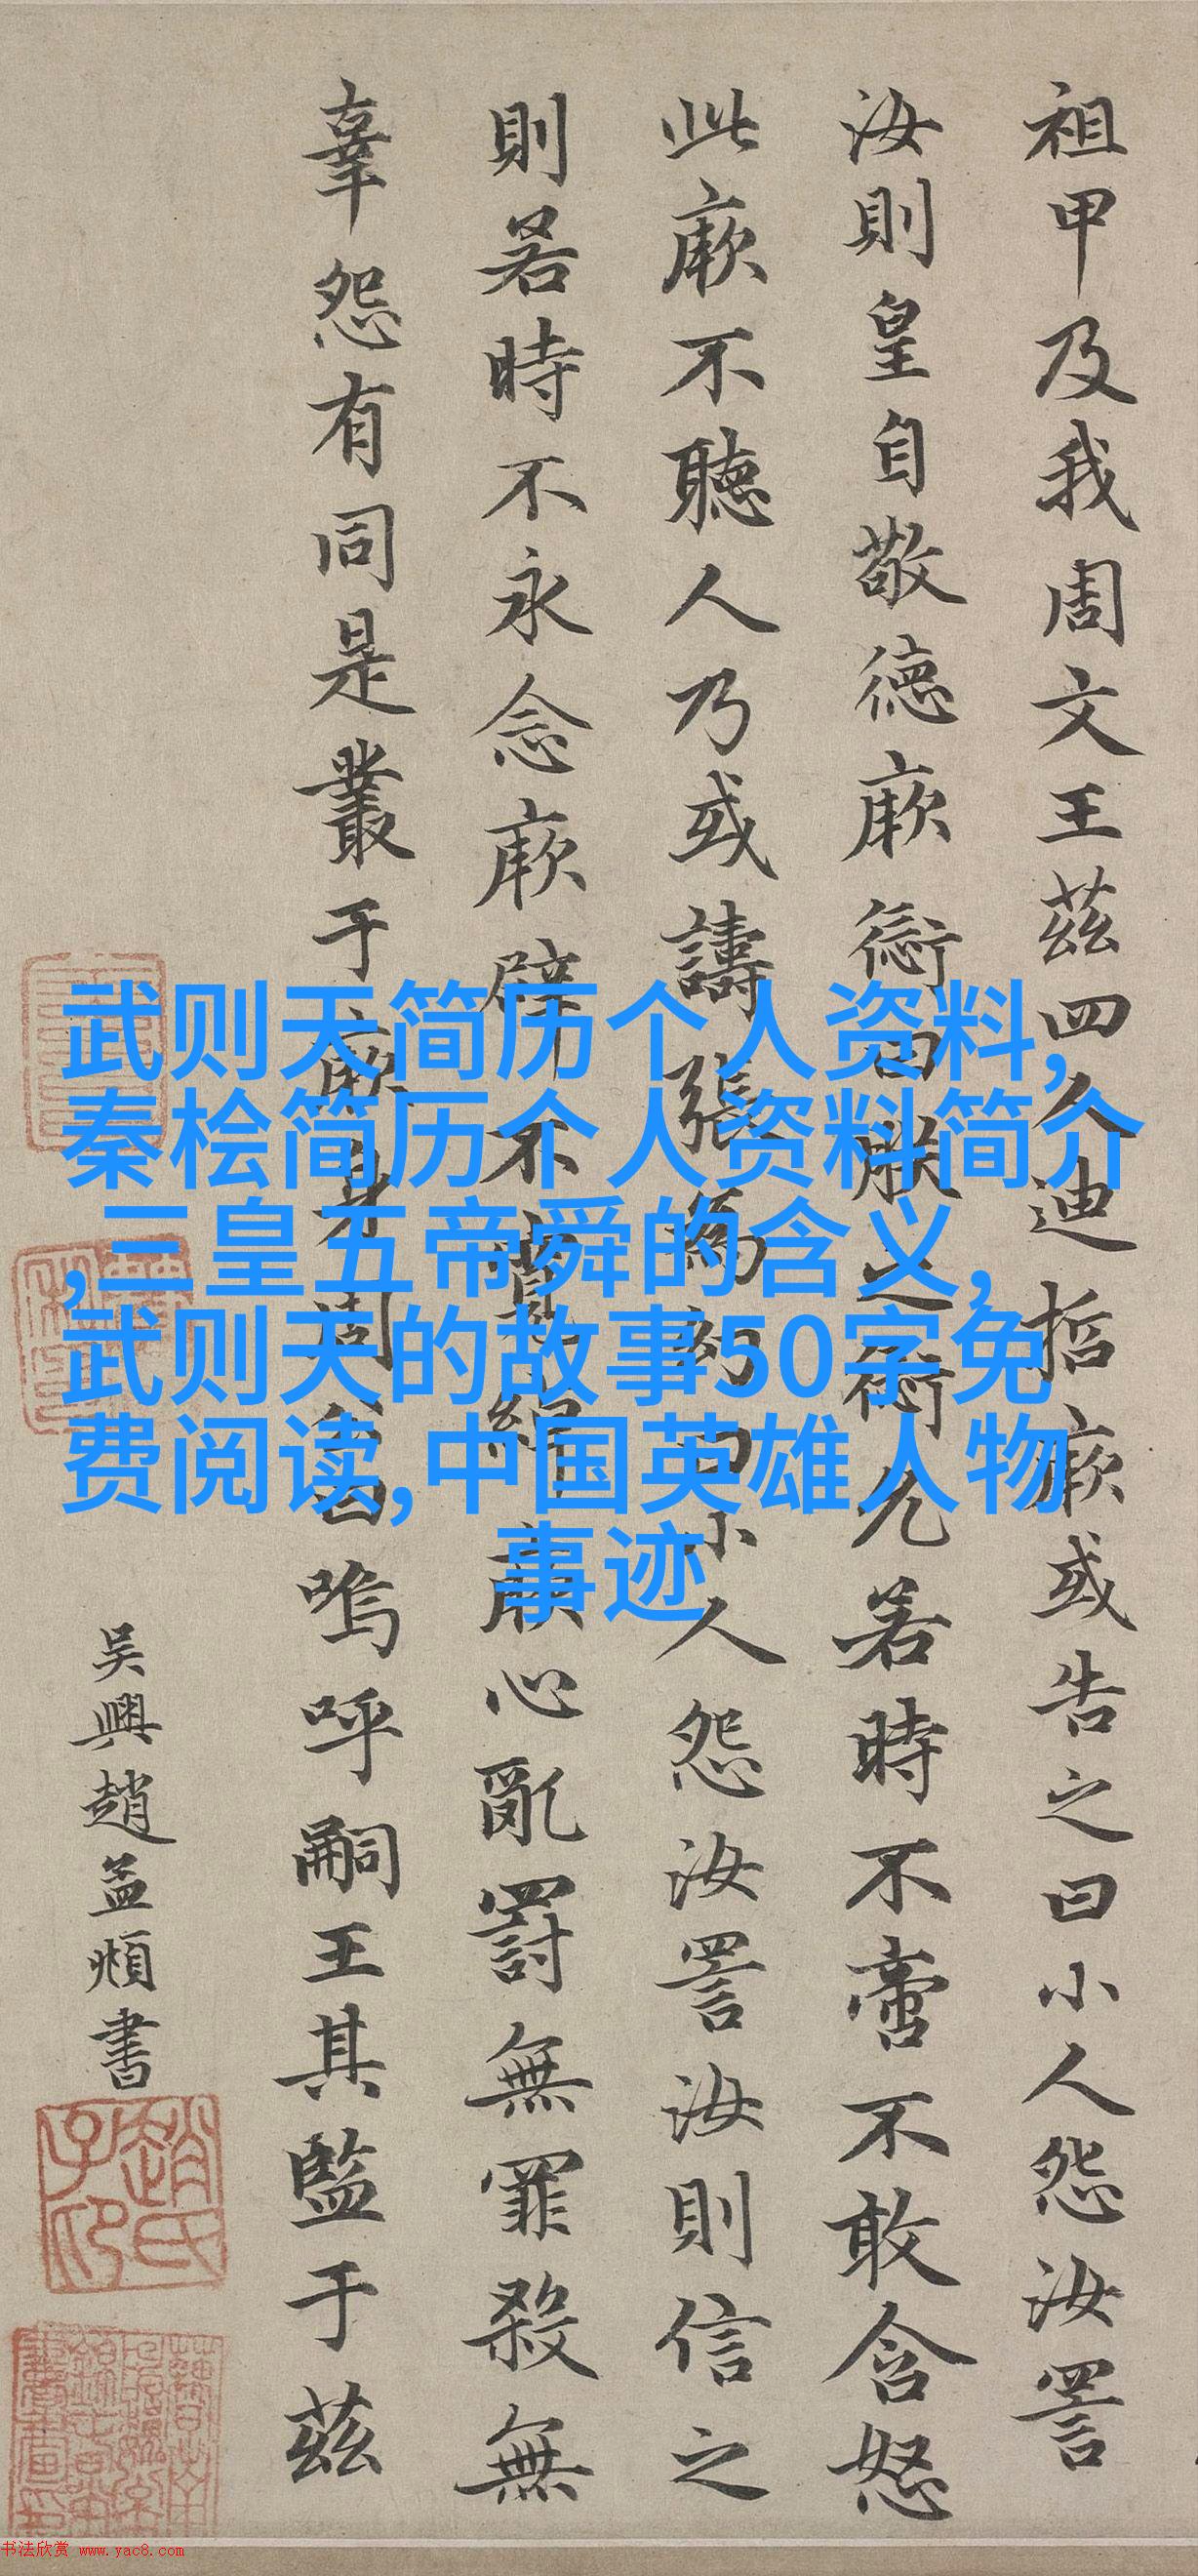 祖甲及我周文王茲四人迪哲厥或告之曰小人怨汝詈
汝則皇自敬德厥愆曰朕之愆允若時不啻不敢含怒
此厥不聽人乃或譸張為幻曰小人怨汝詈汝則信之
則若時不永念厥辟不寬綽厥心亂罰無罪殺無
辜怨有同是叢于厥身周公曰嗚呼嗣王其監于茲
吴興趙孟頫書
趙氏子昂
武则天简历个人资料,
秦桧简历个人资料简介
,三皇五帝舜的含义,
武则天的故事50字免
费阅读,中国英雄人物
事迹
书法欣赏 www.yac8.com